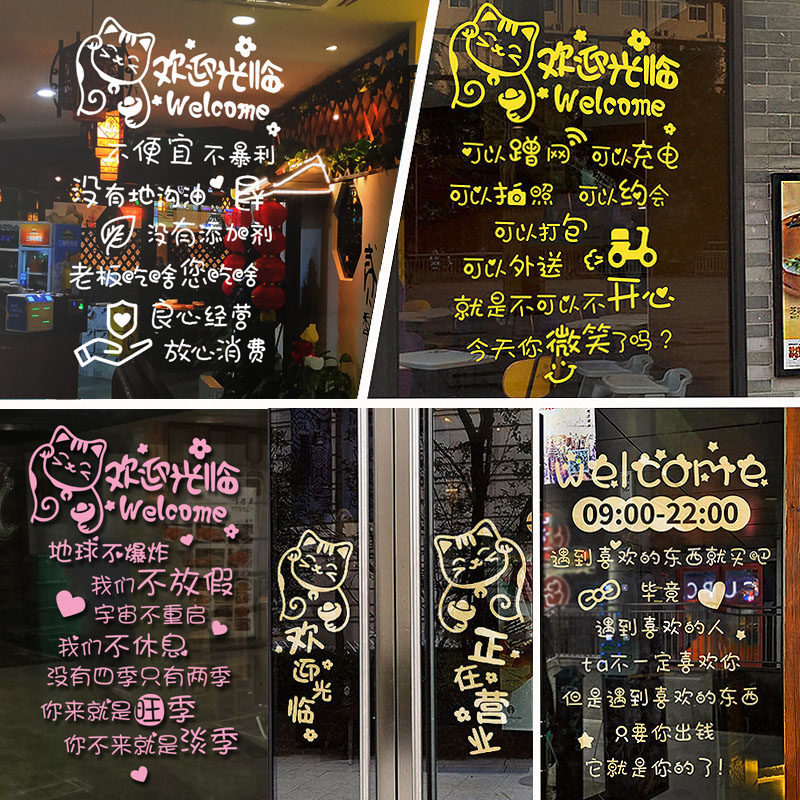 欢迎光临
Welcome
不便宜不暴利
没有地沟油
没有添加剂
老板吃啥您吃啥
良心经营
放心消费
欢迎光临
Welcome
可以蹭网 可以充电
可以拍照 可以约会
可以打包
可以外送
就是不可以不开心
今天你微笑了吗?
欢迎光临
Welcome
地球不爆炸
我们不放假
宇宙不重启
我们不休息
没有四季只有两季
你来就是旺季
你不来就是淡季
欢迎光临
正在营业
welcome
09:00-22:00
遇到喜欢的东西就买吧
毕竟
遇到喜欢的人
ta不一定喜欢你
但是遇到喜欢的东西
只要你出钱
它就是你的了!